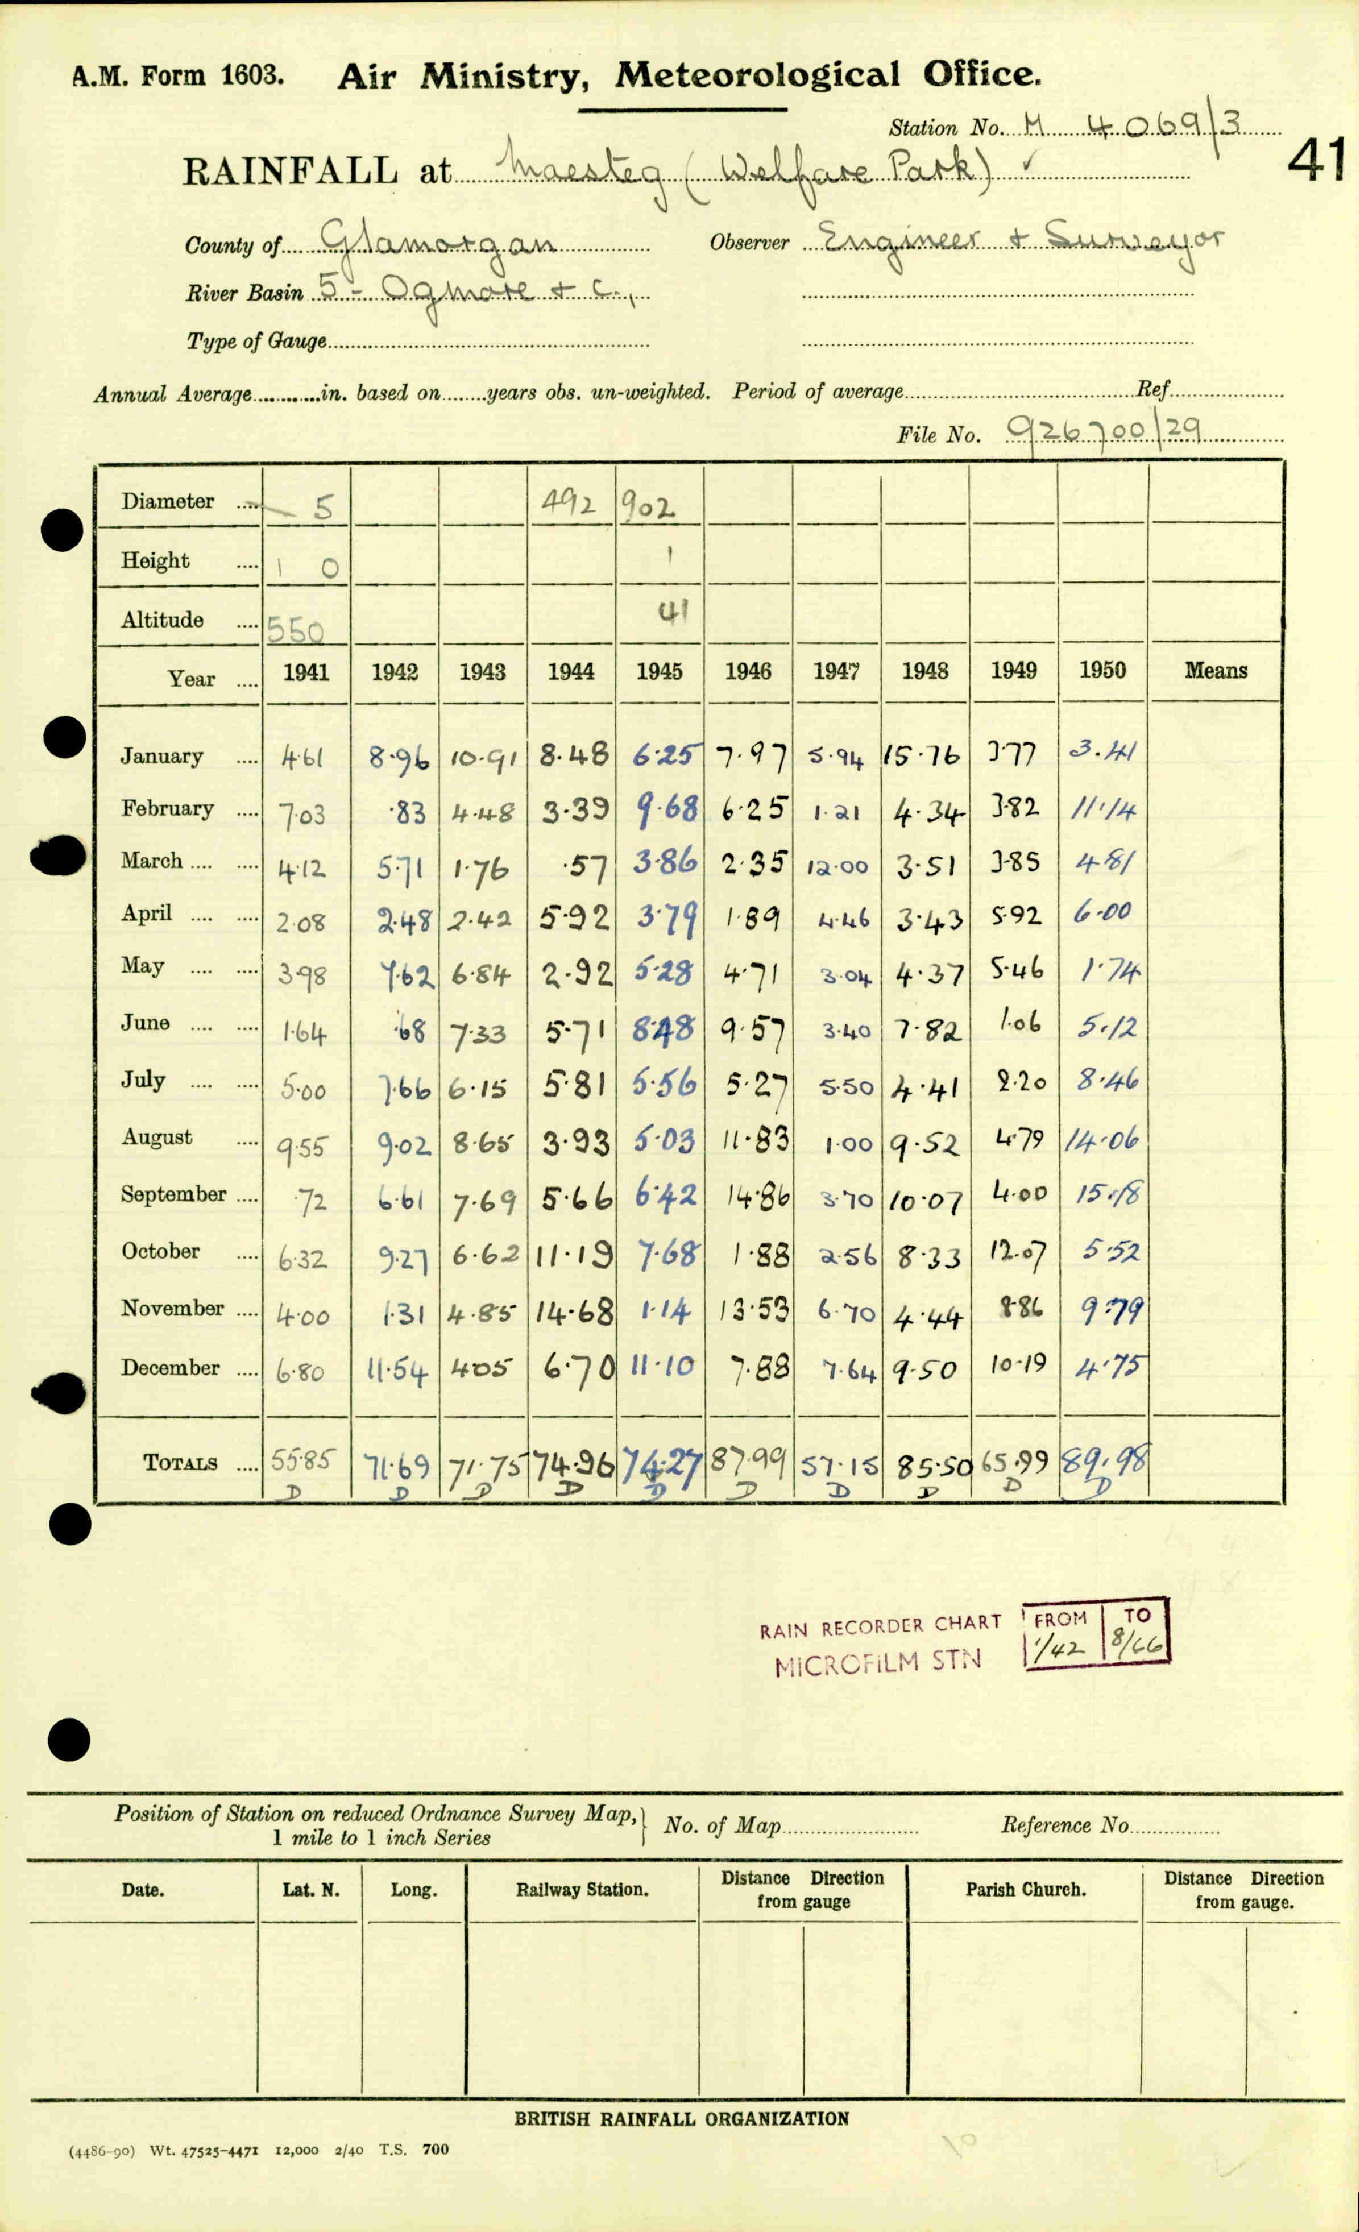 A.M. Form 1603. Air Ministry, Meteorological Office.
Station No. M 4069/3
41
RAINFALL at Maesteg (Welfare Park) ✓
County of Glamorgan Observer Engineer & Surveyor
River Basin 5 - Ogmore & c.,
Type of Gauge
Annual Average in. based on years obs. un-weighted. Period of average Ref.
File No. 926700/29
Diameter 5 492 902
Height 1 0 1
Altitude 550 41
Year 1941 1942 1943 1944 1945 1946 1947 1948 1949 1950 Means
January 4·61 8·96 10·91 8·48 6·25 7·97 5·94 15·76 3·77 3·41
February 7·03 ·83 4·48 3·39 9·68 6·25 1·21 4·34 3·82 11·14
March 4·12 5·71 1·76 ·57 3·86 2·35 12·00 3·51 3·85 4·81
April 2·08 2·48 2·42 5·92 3·79 1·89 4·46 3·43 5·92 6·00
May 3·98 7·62 6·84 2·92 5·28 4·71 3·04 4·37 5·46 1·74
June 1·64 ·68 7·33 5·71 8·48 9·57 3·40 7·82 1·06 5·12
July 5·00 7·66 6·15 5·81 5·56 5·27 5·50 4·41 2·20 8·46
August 9·55 9·02 8·65 3·93 5·03 11·83 1·00 9·52 4·79 14·06
September ·72 6·61 7·69 5·66 6·42 14·86 3·70 10·07 4·00 15·18
October 6·32 9·27 6·62 11·19 7·68 1·88 2·56 8·33 12·07 5·52
November 4·00 1·31 4·85 14·68 1·14 13·53 6·70 4·44 8·86 9·79
December 6·80 11·54 4·05 6·70 11·10 7·88 7·64 9·50 10·19 4·75
TOTALS 55·85 71·69 71·75 74·96 74·27 87·99 57·15 85·50 65·99 89·98
D D D D D D D D D D
RAIN RECORDER CHART FROM TO
MICROFILM STN 1/42 8/66
Position of Station on reduced Ordnance Survey Map, No. of Map Reference No.
1 mile to 1 inch Series
Date. Lat. N. Long. Railway Station. Distance Direction from gauge Parish Church. Distance Direction from gauge.
BRITISH RAINFALL ORGANIZATION
(4486-90) Wt. 47525-4471 12,000 2/40 T.S. 700
10